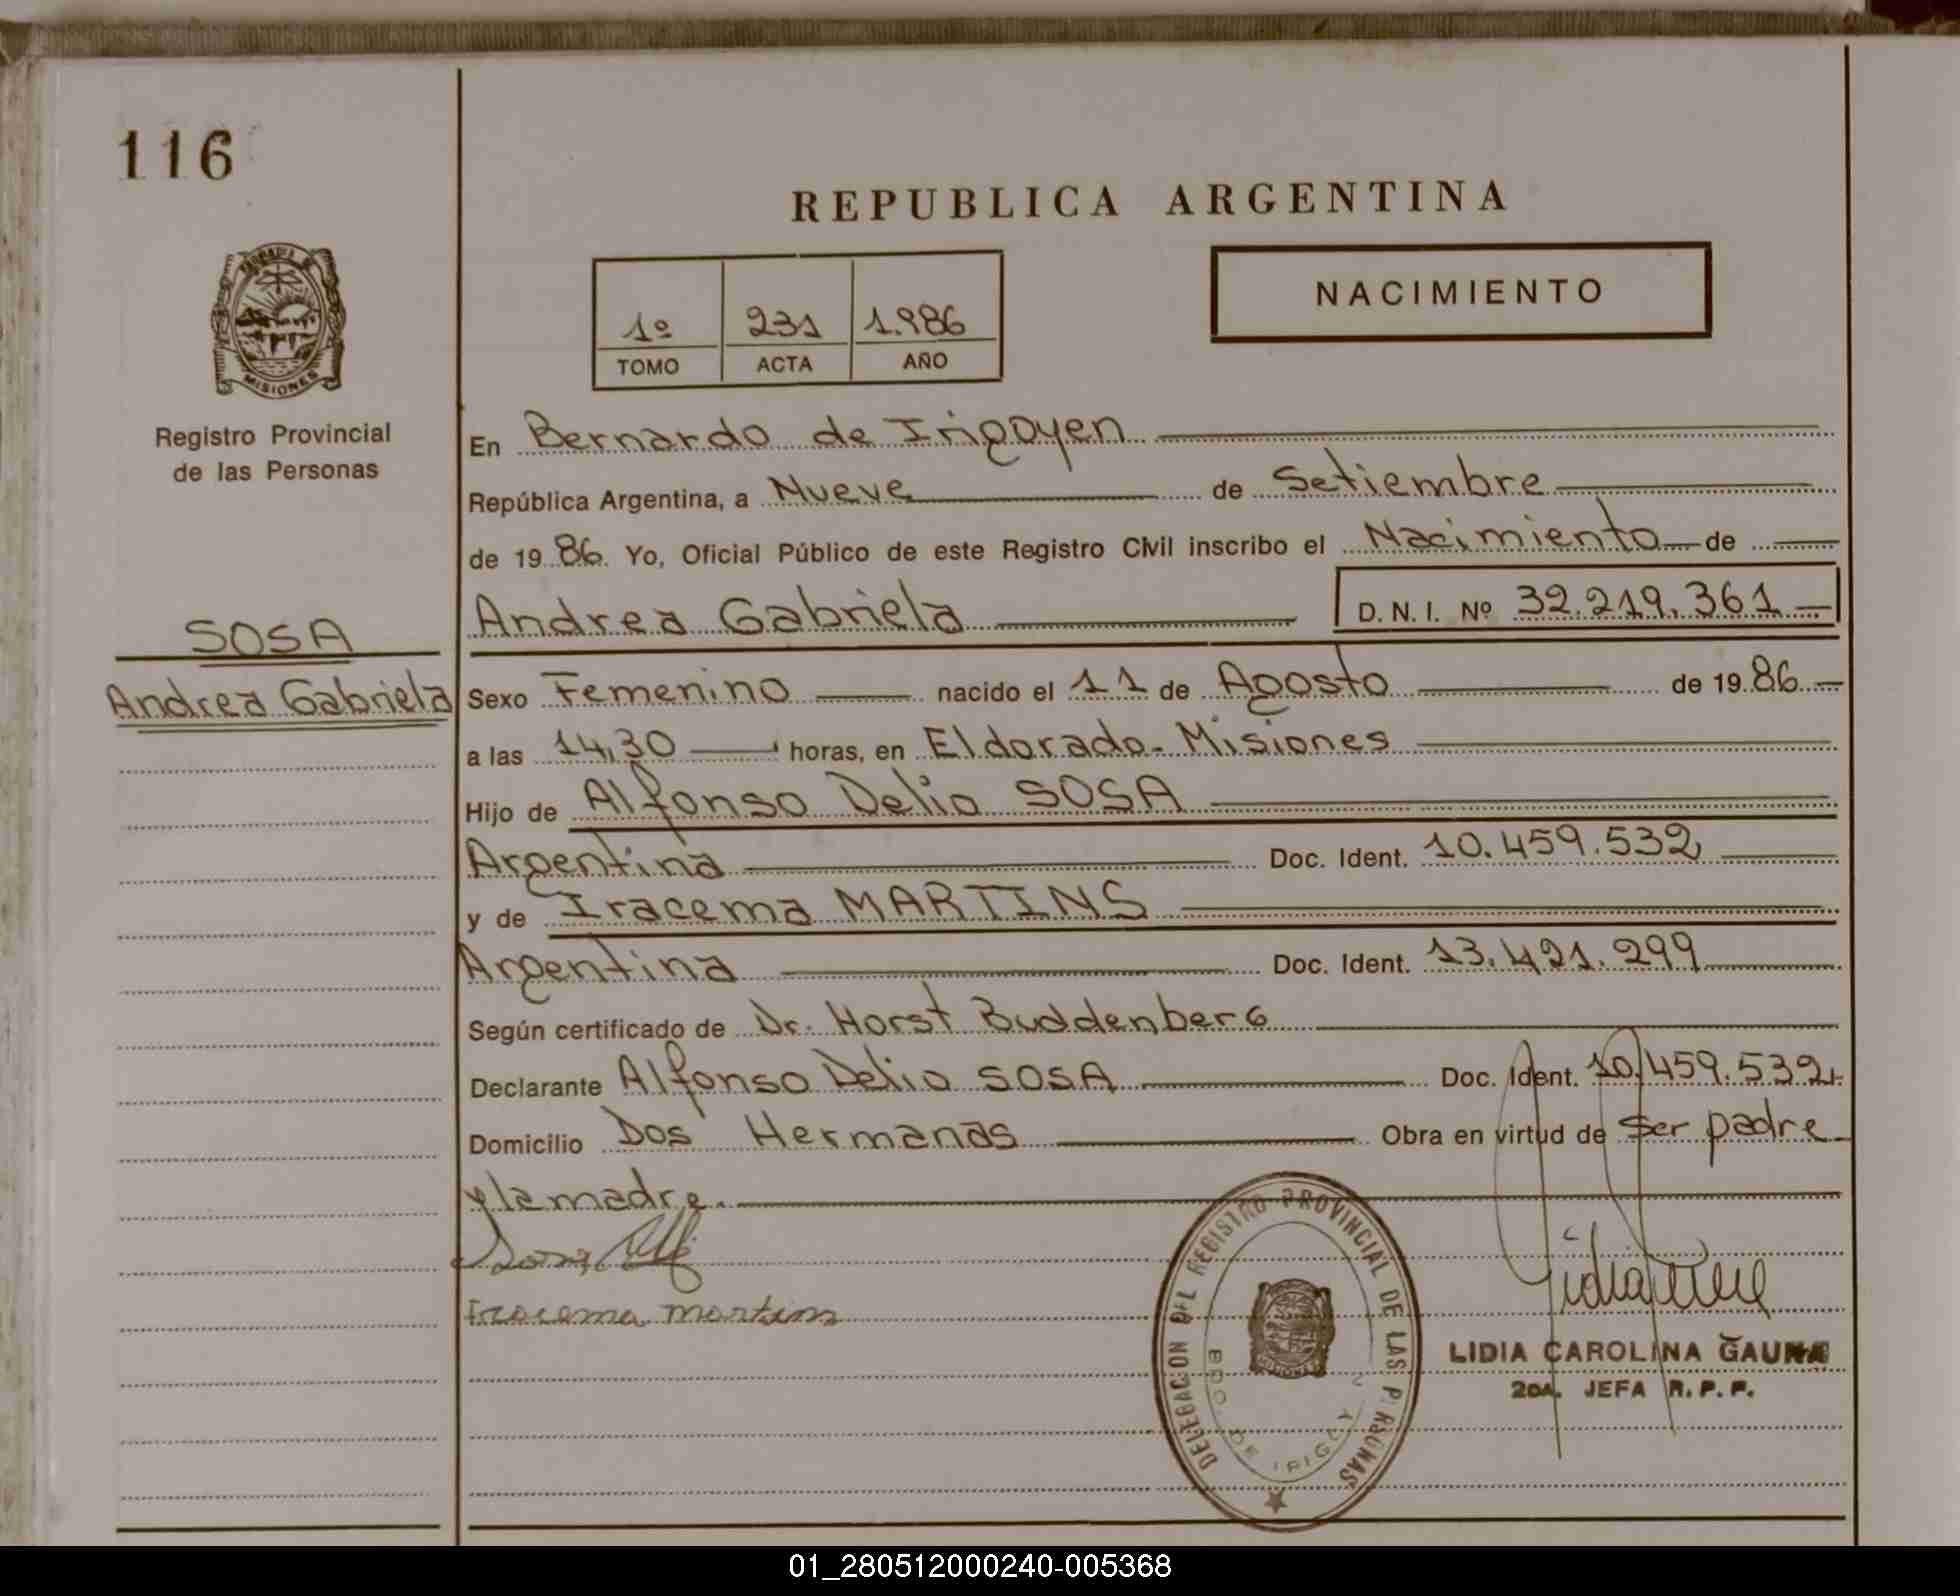 116
REPUBLICA ARGENTINA
NACIMIENTO
1º 231 1.986
TOMO ACTA AÑO
MISIONES
Registro Provincial
de las Personas
En Bernardo de Irigoyen
República Argentina, a Nueve de Setiembre
de 19 86. Yo, Oficial Público de este Registro Civil inscribo el Nacimiento de
Andrea Gabriela D. N. I. Nº 32.219.361
SOSA
Andrea Gabriela
Sexo Femenino nacido el 11 de Agosto de 19 86
a las 14,30 horas, en Eldorado - Misiones
Hijo de Alfonso Delio SOSA
Argentina Doc. Ident. 10.459.532
y de Iracema MARTINS
Argentina Doc. Ident. 13.421.299
Según certificado de Dr. Horst Buddenberg
Declarante Alfonso Delio SOSA Doc. Ident. 10.459.532
Domicilio Dos Hermanas Obra en virtud de ser padre
y la madre.
Iracema martins
DELEGACION DEL REGISTRO PROVINCIAL DE LAS PERSONAS
BDO. DE IRIGOY
LIDIA CAROLINA GAUNA
2DA. JEFA R. P. P.
01_280512000240-005368